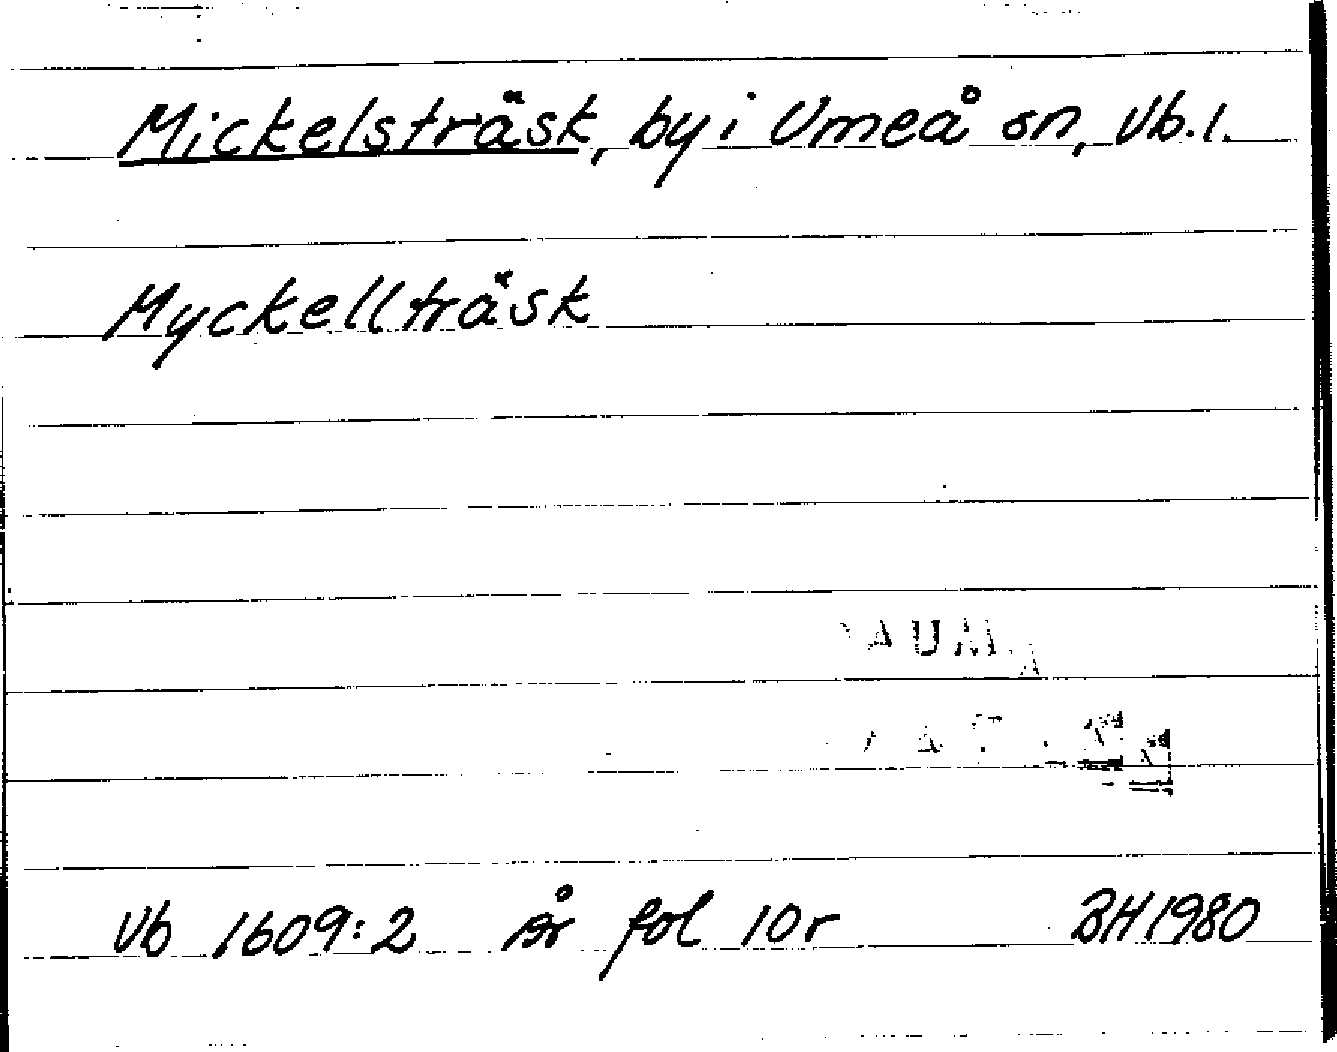 Mickelsträsk, by i Umeå sn, Vb. l.
Myckellträsk
DAUM
Vb 1609:2 år fol 10r BH 1980